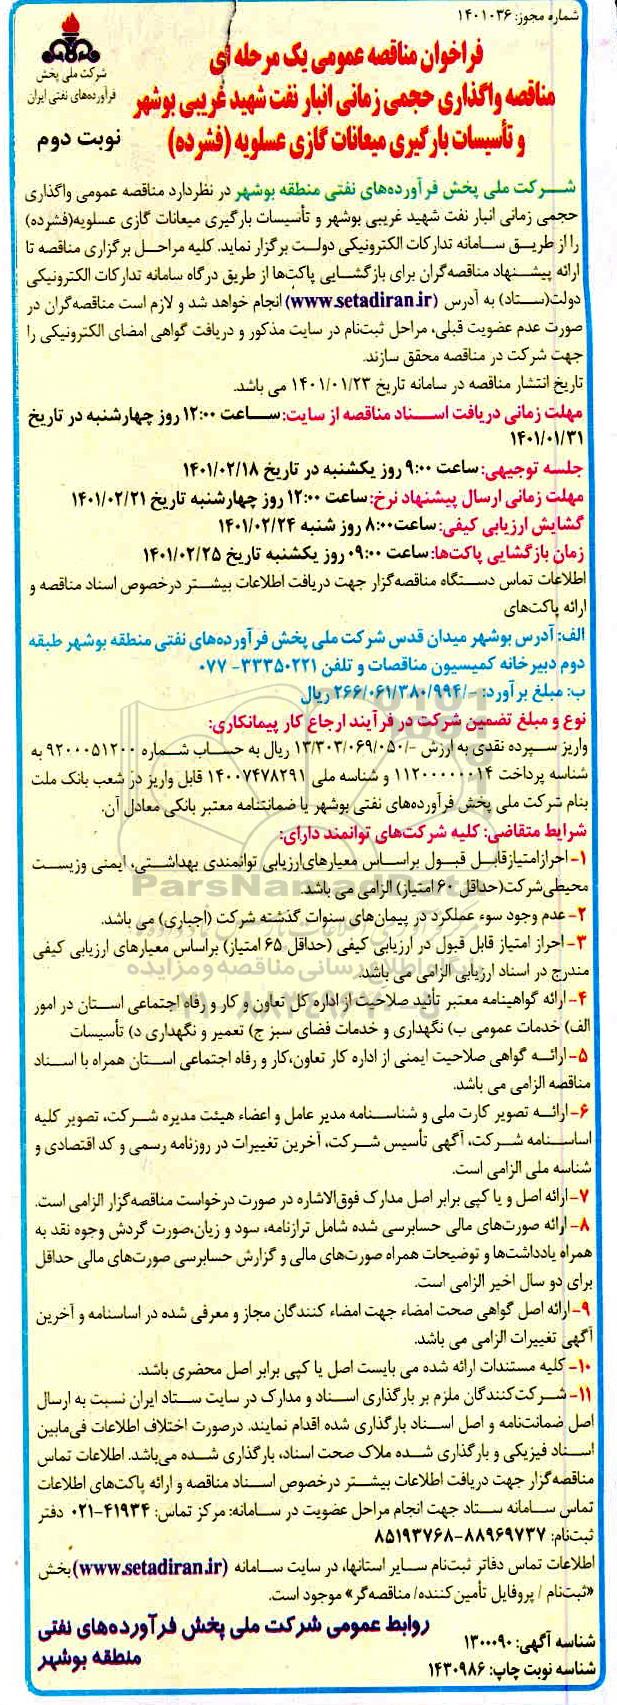 شماره مجوز: ۱۴۰۱۰۳۶
شرکت ملی پخش
فرآورده‌های نفتی ایران
نوبت دوم
فراخوان مناقصه عمومی یک مرحله ای
مناقصه واگذاری حجمی زمانی انبار نفت شهید غریبی بوشهر
و تأسیسات بارگیری میعانات گازی عسلویه (فشرده)
شرکت ملی پخش فرآورده‌های نفتی منطقه بوشهر در نظردارد مناقصه عمومی واگذاری
حجمی زمانی انبار نفت شهید غریبی بوشهر و تأسیسات بارگیری میعانات گازی عسلویه(فشرده)
را از طریق سامانه تدارکات الکترونیکی دولت برگزار نماید. کلیه مراحل برگزاری مناقصه تا
ارائه پیشنهاد مناقصه‌گران برای بازگشایی پاکت‌ها از طریق درگاه سامانه تدارکات الکترونیکی
دولت(ستاد) به آدرس (www.setadiran.ir) انجام خواهد شد و لازم است مناقصه‌گران در
صورت عدم عضویت قبلی، مراحل ثبت‌نام در سایت مذکور و دریافت گواهی امضای الکترونیکی را
جهت شرکت در مناقصه محقق سازند.
تاریخ انتشار مناقصه در سامانه تاریخ ۱۴۰۱/۰۱/۲۳ می باشد.
مهلت زمانی دریافت اسناد مناقصه از سایت: ساعت ۱۲:۰۰ روز چهارشنبه در تاریخ
۱۴۰۱/۰۱/۳۱
جلسه توجیهی: ساعت ۹:۰۰ روز یکشنبه در تاریخ ۱۴۰۱/۰۲/۱۸
مهلت زمانی ارسال پیشنهاد نرخ: ساعت ۱۲:۰۰ روز چهارشنبه تاریخ ۱۴۰۱/۰۲/۲۱
گشایش ارزیابی کیفی: ساعت۸:۰۰ روز شنبه ۱۴۰۱/۰۲/۲۴
زمان بازگشایی پاکت‌ها: ساعت ۰۹:۰۰ روز یکشنبه تاریخ ۱۴۰۱/۰۲/۲۵
اطلاعات تماس دستگاه مناقصه‌گزار جهت دریافت اطلاعات بیشتر درخصوص اسناد مناقصه و
ارائه پاکت‌های
الف: آدرس بوشهر میدان قدس شرکت ملی پخش فرآورده‌های نفتی منطقه بوشهر طبقه
دوم دبیرخانه کمیسیون مناقصات و تلفن ۳۳۳۵۰۲۲۱- ۰۷۷
ب: مبلغ برآورد: -/۲۶۶/۰۶۱/۳۸۰/۹۹۴ ریال
نوع و مبلغ تضمین شرکت در فرآیند ارجاع کار پیمانکاری:
واریز سپرده نقدی به ارزش -/۱۳/۳۰۳/۰۶۹/۰۵۰ ریال به حساب شماره ۹۲۰۰۰۵۱۲۰۰ به
شناسه پرداخت ۱۱۲۰۰۰۰۰۰۱۴ و شناسه ملی ۱۴۰۰۷۴۷۸۲۹۱ قابل واریز در شعب بانک ملت
بنام شرکت ملی پخش فرآورده‌های نفتی بوشهر یا ضمانتنامه معتبر بانکی معادل آن.
شرایط متقاضی: کلیه شرکت‌های توانمند دارای:
۱- احراز‌امتیاز‌قابل قبول براساس معیارهای‌ارزیابی توانمندی بهداشتی، ایمنی و‌زیست
محیطی‌شرکت(حداقل ۶۰ امتیاز) الزامی می باشد.
۲- عدم وجود سوء عملکرد در پیمان‌های سنوات گذشته شرکت (اجباری) می باشد.
۳- احراز امتیاز قابل قبول در ارزیابی کیفی (حداقل ۶۵ امتیاز) براساس معیارهای ارزیابی کیفی
مندرج در اسناد ارزیابی الزامی می باشد.
۴- ارائه گواهینامه معتبر تأئید صلاحیت از اداره کل تعاون و کار و رفاه اجتماعی استان در امور
الف) خدمات عمومی ب) نگهداری و خدمات فضای سبز ج) تعمیر و نگهداری د) تأسیسات
۵- ارائه گواهی صلاحیت ایمنی از اداره کار تعاون،کار و رفاه اجتماعی استان همراه با اسناد
مناقصه الزامی می باشد.
۶- ارائه تصویر کارت ملی و شناسنامه مدیر عامل و اعضاء هیئت مدیره شرکت، تصویر کلیه
اساسنامه شرکت، آگهی تأسیس شرکت، آخرین تغییرات در روزنامه رسمی و کد اقتصادی و
شناسه ملی الزامی است.
۷- ارائه اصل و یا کپی برابر اصل مدارک فوق‌الاشاره در صورت درخواست مناقصه‌گزار الزامی است.
۸- ارائه صورت‌های مالی حسابرسی شده شامل ترازنامه، سود و زیان،صورت گردش وجوه نقد به
همراه یادداشت‌ها و توضیحات همراه صورت‌های مالی و گزارش حسابرسی صورت‌های مالی حداقل
برای دو سال اخیر الزامی است.
۹- ارائه اصل گواهی صحت امضاء جهت امضاء کنندگان مجاز و معرفی شده در اساسنامه و آخرین
آگهی تغییرات الزامی می باشد.
۱۰- کلیه مستندات ارائه شده می بایست اصل یا کپی برابر اصل محضری باشد.
۱۱- شرکت‌کنندگان ملزم بر بارگذاری اسناد و مدارک در سایت ستاد ایران نسبت به ارسال
اصل ضمانت‌نامه و اصل اسناد بارگذاری شده اقدام نمایند. درصورت اختلاف اطلاعات فی‌مابین
اسناد فیزیکی و بارگذاری شده ملاک صحت اسناد، بارگذاری شده می‌باشد. اطلاعات تماس
مناقصه‌گزار جهت دریافت اطلاعات بیشتر درخصوص اسناد مناقصه و ارائه پاکت‌های اطلاعات
تماس سامانه ستاد جهت انجام مراحل عضویت در سامانه: مرکز تماس: ۴۱۹۳۴-۰۲۱ دفتر
ثبت‌نام: ۸۸۹۶۹۷۳۷-۸۵۱۹۳۷۶۸
اطلاعات تماس دفاتر ثبت‌نام سایر استانها، در سایت سامانه (www.setadiran.ir)بخش
«ثبت‌نام / پروفایل تأمین‌کننده/ مناقصه‌گر» موجود است.
روابط عمومی شرکت ملی پخش فرآورده‌های نفتی
منطقه بوشهر
شناسه آگهی: ۱۳۰۰۰۹۰
شناسه نوبت چاپ: ۱۴۳۰۹۸۶
ParsNamadData
پایگاه اطلاع رسانی مناقصه و مزایده
۰۲۱-۸۸۳۴۹۶۷۰-۵